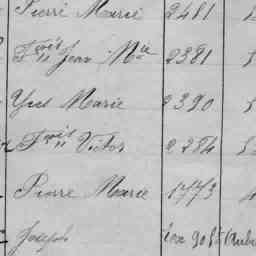 Pierre Marie 2481
F.çois Jean M.ie 2381
Yves Marie 2390
F.çois Victor 2384
Pierre Marie 1773
Joseph